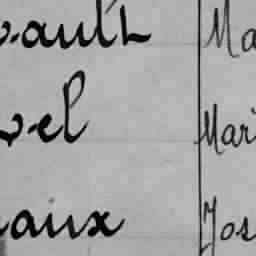 vault Ma
vel Mari
aux Jos